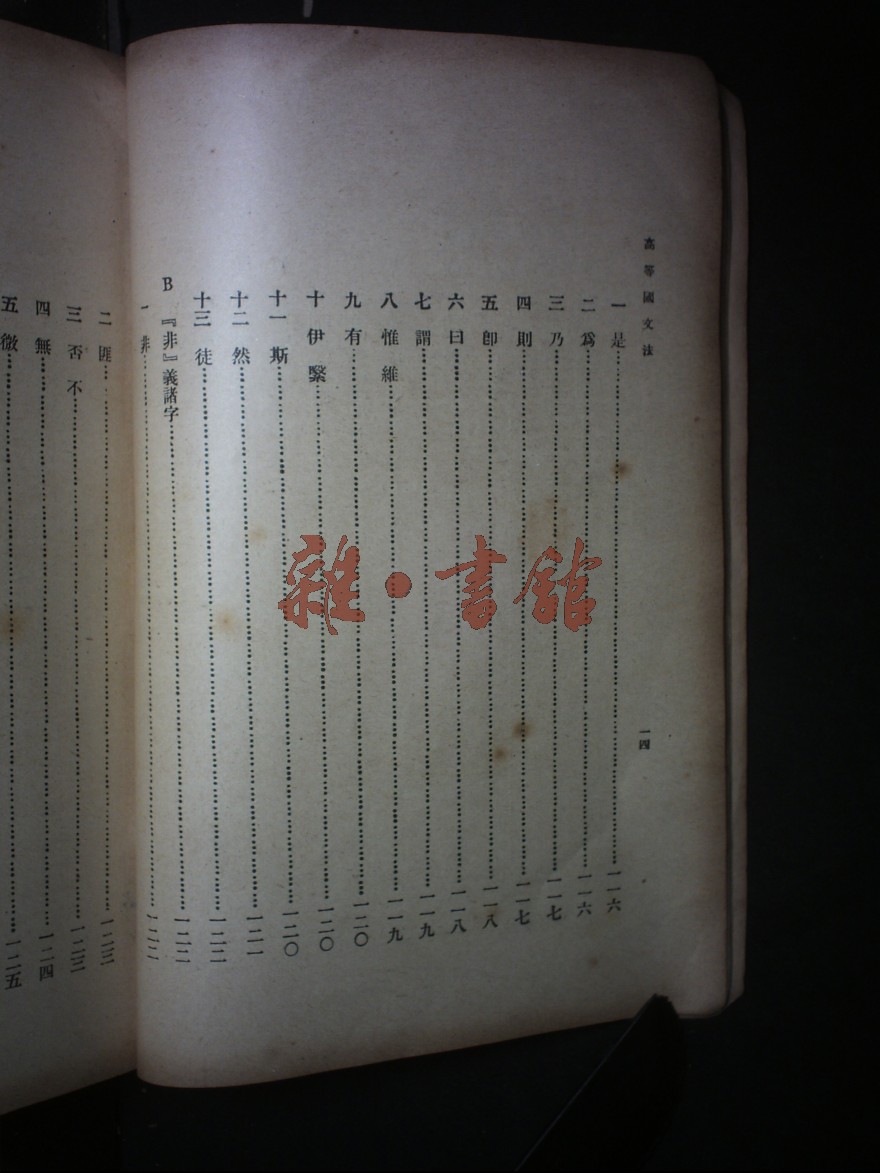 高等國文法
一四
一 是……一一六
二 爲……一一六
三 乃……一一七
四 則……一一七
五 卽……一一八
六 曰……一一八
七 謂……一一九
八 惟 維……一一九
九 有……一二〇
十 伊 繄……一二〇
十一 斯……一二〇
十二 然……一二一
十三 徒……一二二
B 『非』義諸字……一二二
一 非……一二二
二 匪……一二三
三 否 不……一二三
四 無……一二四
五 微……一二五
雜·書館